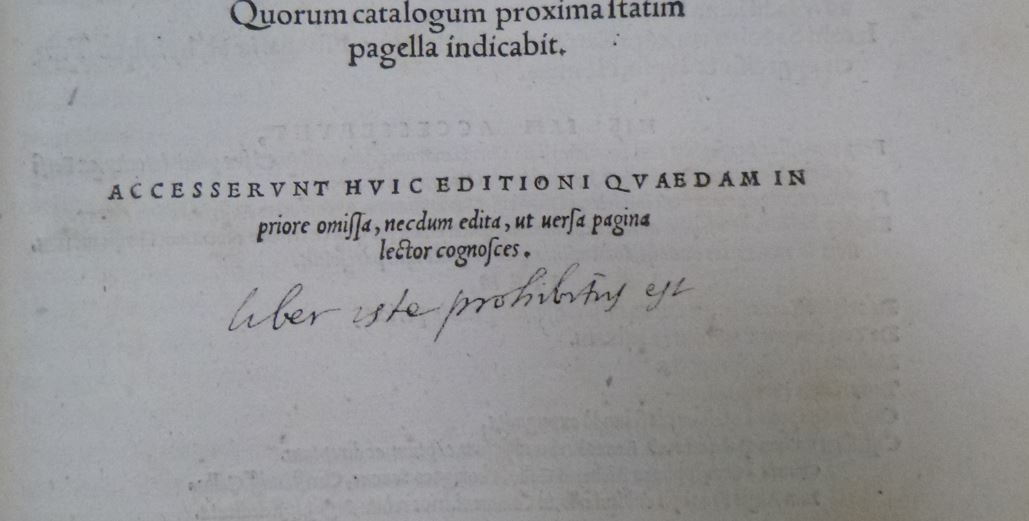 Quorum catalogum proxima ſtatim
pagella indicabit.
ACCESSERVNT HVIC EDITIONI QVAEDAM IN
priore omiſſa, necdum edita, ut uerſa pagina
lector cognoſces.
liber iste prohibitus est